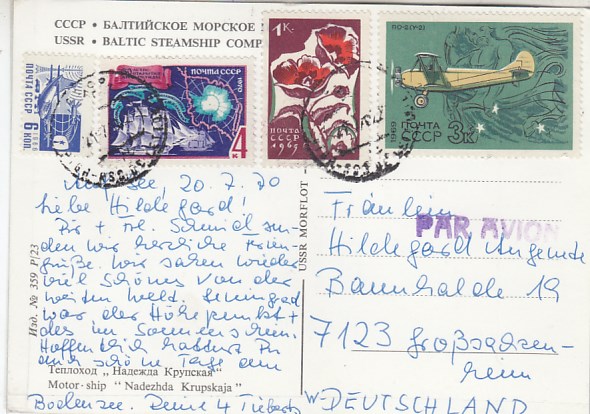 СССР • БАЛТИЙСКОЕ МОРСКОЕ
USSR • BALTIC STEAMSHIP COMP
ПОЧТА СССР
6 коп.
ПОЧТА СССР 1970
4 к
1К.
ПОЧТА СССР
1965
ПО-2 (У-2)
1969 ПОЧТА СССР 3к
20.7.70
liebe Hildegard!
Dir + Frl. Schmid sen-
den wir herzliche Ferien-
grüße. Wir sahen wieder
viel Schönes von der
weiten Welt. Leningrad
war der Höhepunkt +
das im Sonnenschein.
Hoffentlich hattest Du
auch schöne Tage am
Bodensee. Deine 4
Изд. № 359 P/23
Теплоход „Надежда Крупская"
Motor-ship "Nadezhda Krupskaja"
USSR MORFLOT
PAR AVION
Fräulein
Hildegard
Baumhalde 19
7123 Großsachsen-
heim
W-DEUTSCHLAND